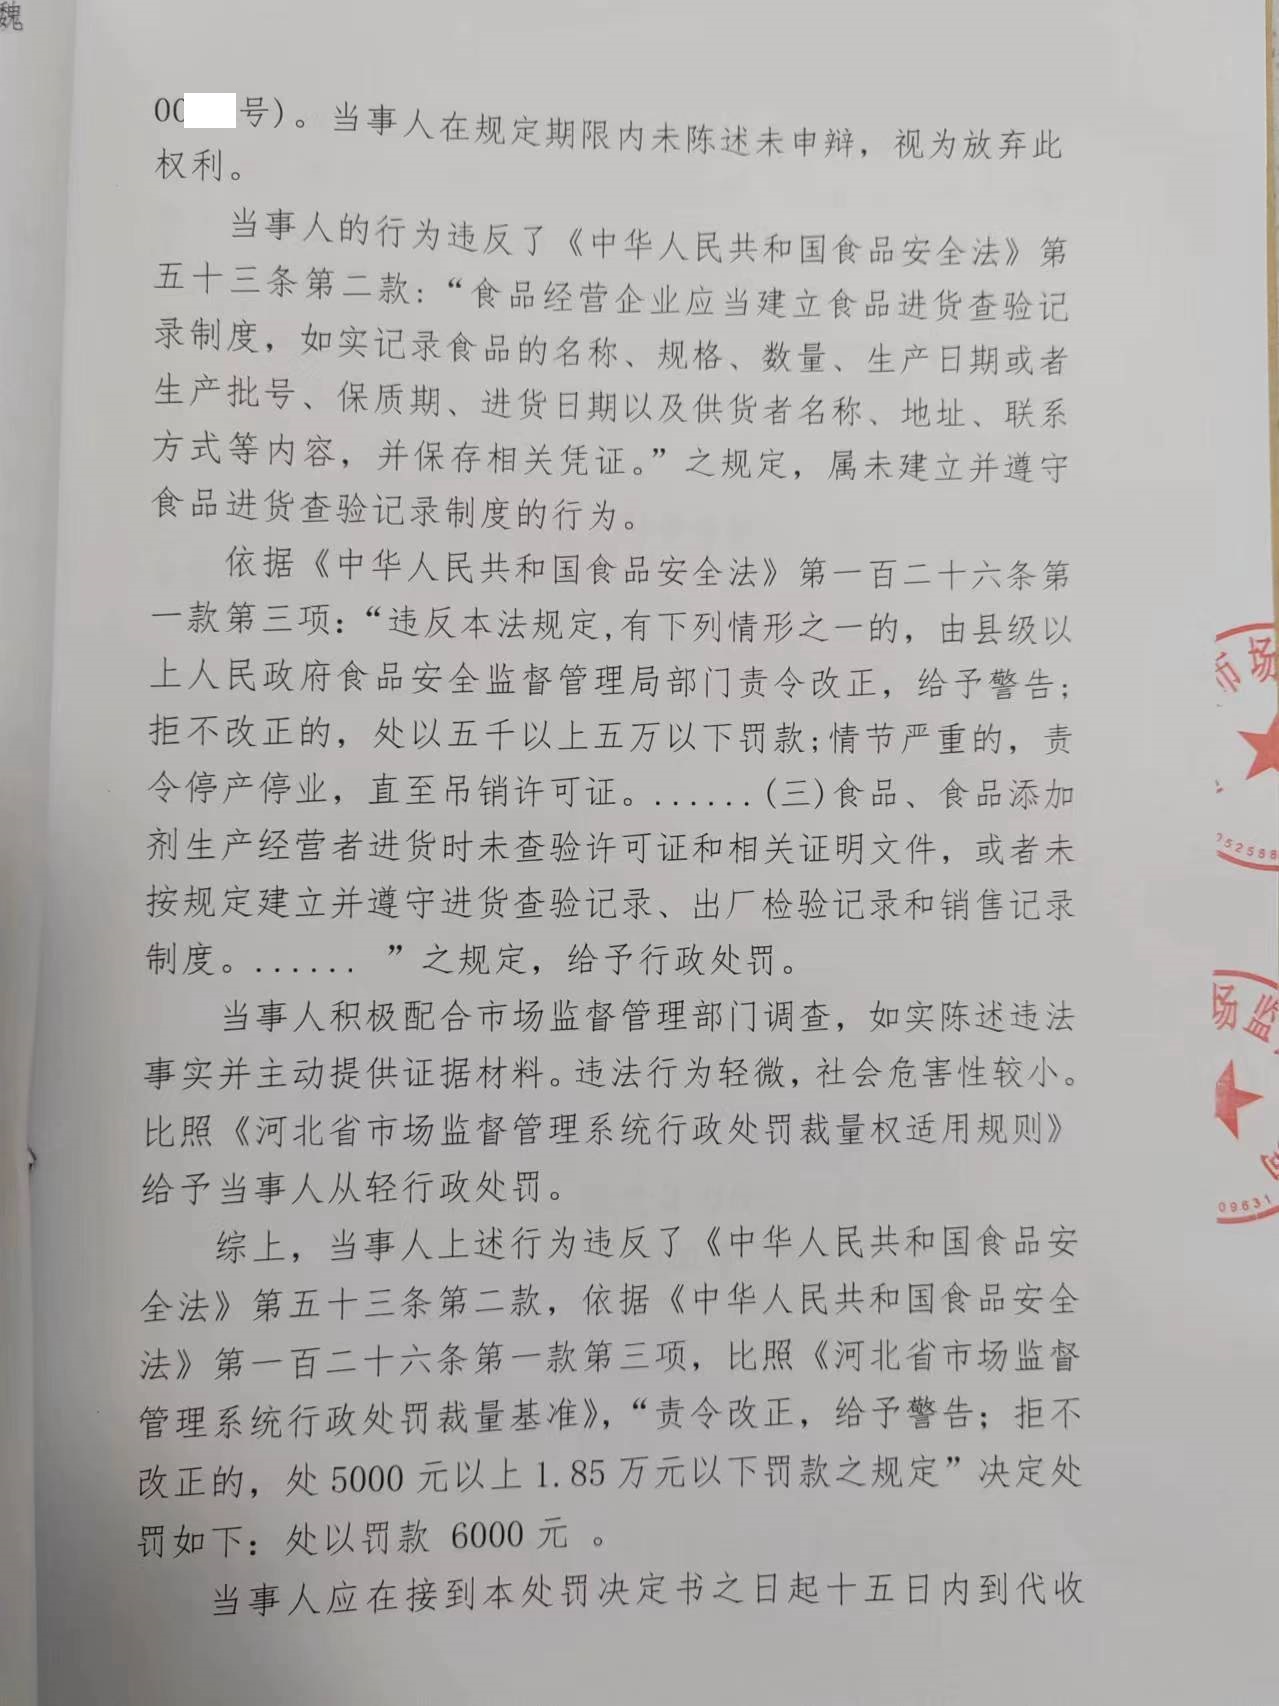 魏
00 号）。当事人在规定期限内未陈述未申辩，视为放弃此
权利。
当事人的行为违反了《中华人民共和国食品安全法》第
五十三条第二款：“食品经营企业应当建立食品进货查验记
录制度，如实记录食品的名称、规格、数量、生产日期或者
生产批号、保质期、进货日期以及供货者名称、地址、联系
方式等内容，并保存相关凭证。”之规定，属未建立并遵守
食品进货查验记录制度的行为。
依据《中华人民共和国食品安全法》第一百二十六条第
一款第三项：“违反本法规定,有下列情形之一的，由县级以
上人民政府食品安全监督管理局部门责令改正，给予警告；
拒不改正的，处以五千以上五万以下罚款;情节严重的，责
令停产停业，直至吊销许可证。......(三)食品、食品添加
剂生产经营者进货时未查验许可证和相关证明文件，或者未
按规定建立并遵守进货查验记录、出厂检验记录和销售记录
制度。...... ”之规定，给予行政处罚。
当事人积极配合市场监督管理部门调查，如实陈述违法
事实并主动提供证据材料。违法行为轻微，社会危害性较小。
比照《河北省市场监督管理系统行政处罚裁量权适用规则》
给予当事人从轻行政处罚。
综上，当事人上述行为违反了《中华人民共和国食品安
全法》第五十三条第二款，依据《中华人民共和国食品安全
法》第一百二十六条第一款第三项，比照《河北省市场监督
管理系统行政处罚裁量基准》，“责令改正，给予警告；拒不
改正的，处 5000 元以上 1.85 万元以下罚款之规定”决定处
罚如下：处以罚款 6000 元 。
当事人应在接到本处罚决定书之日起十五日内到代收
市场
52588
场监
09631